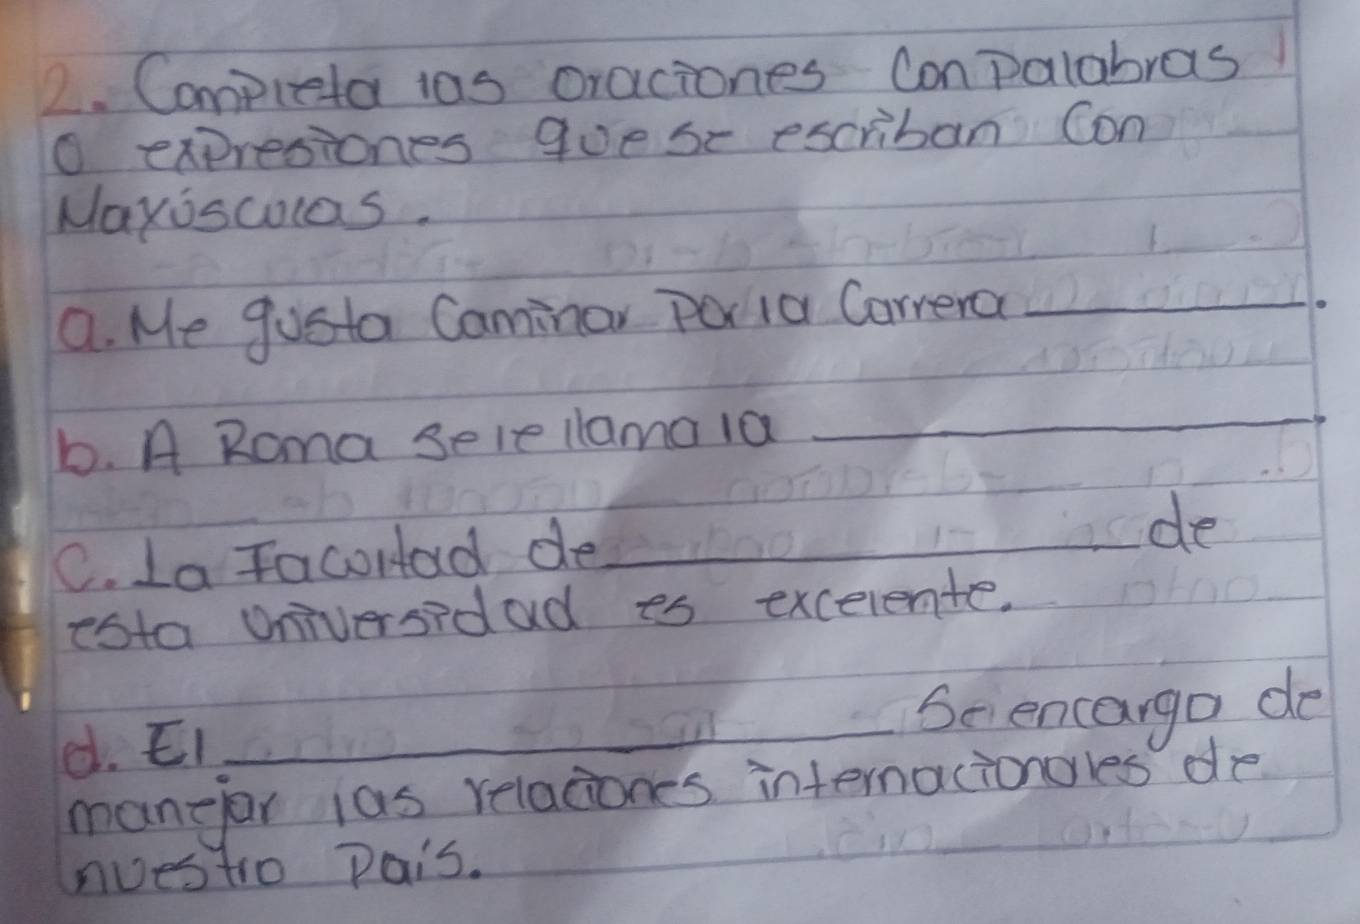 2. Completa las oraciones con palabras
o expresiones que se escriban con
Mayúsculas.
a. Me gusta caminar por la Carrera ________.
b. A Roma se le llama la ________.
c. La Facultad de ________ de
esta universidad es excelente.
d. El ________ se encarga de
manejar las relaciones internacionales de
nuestro país.